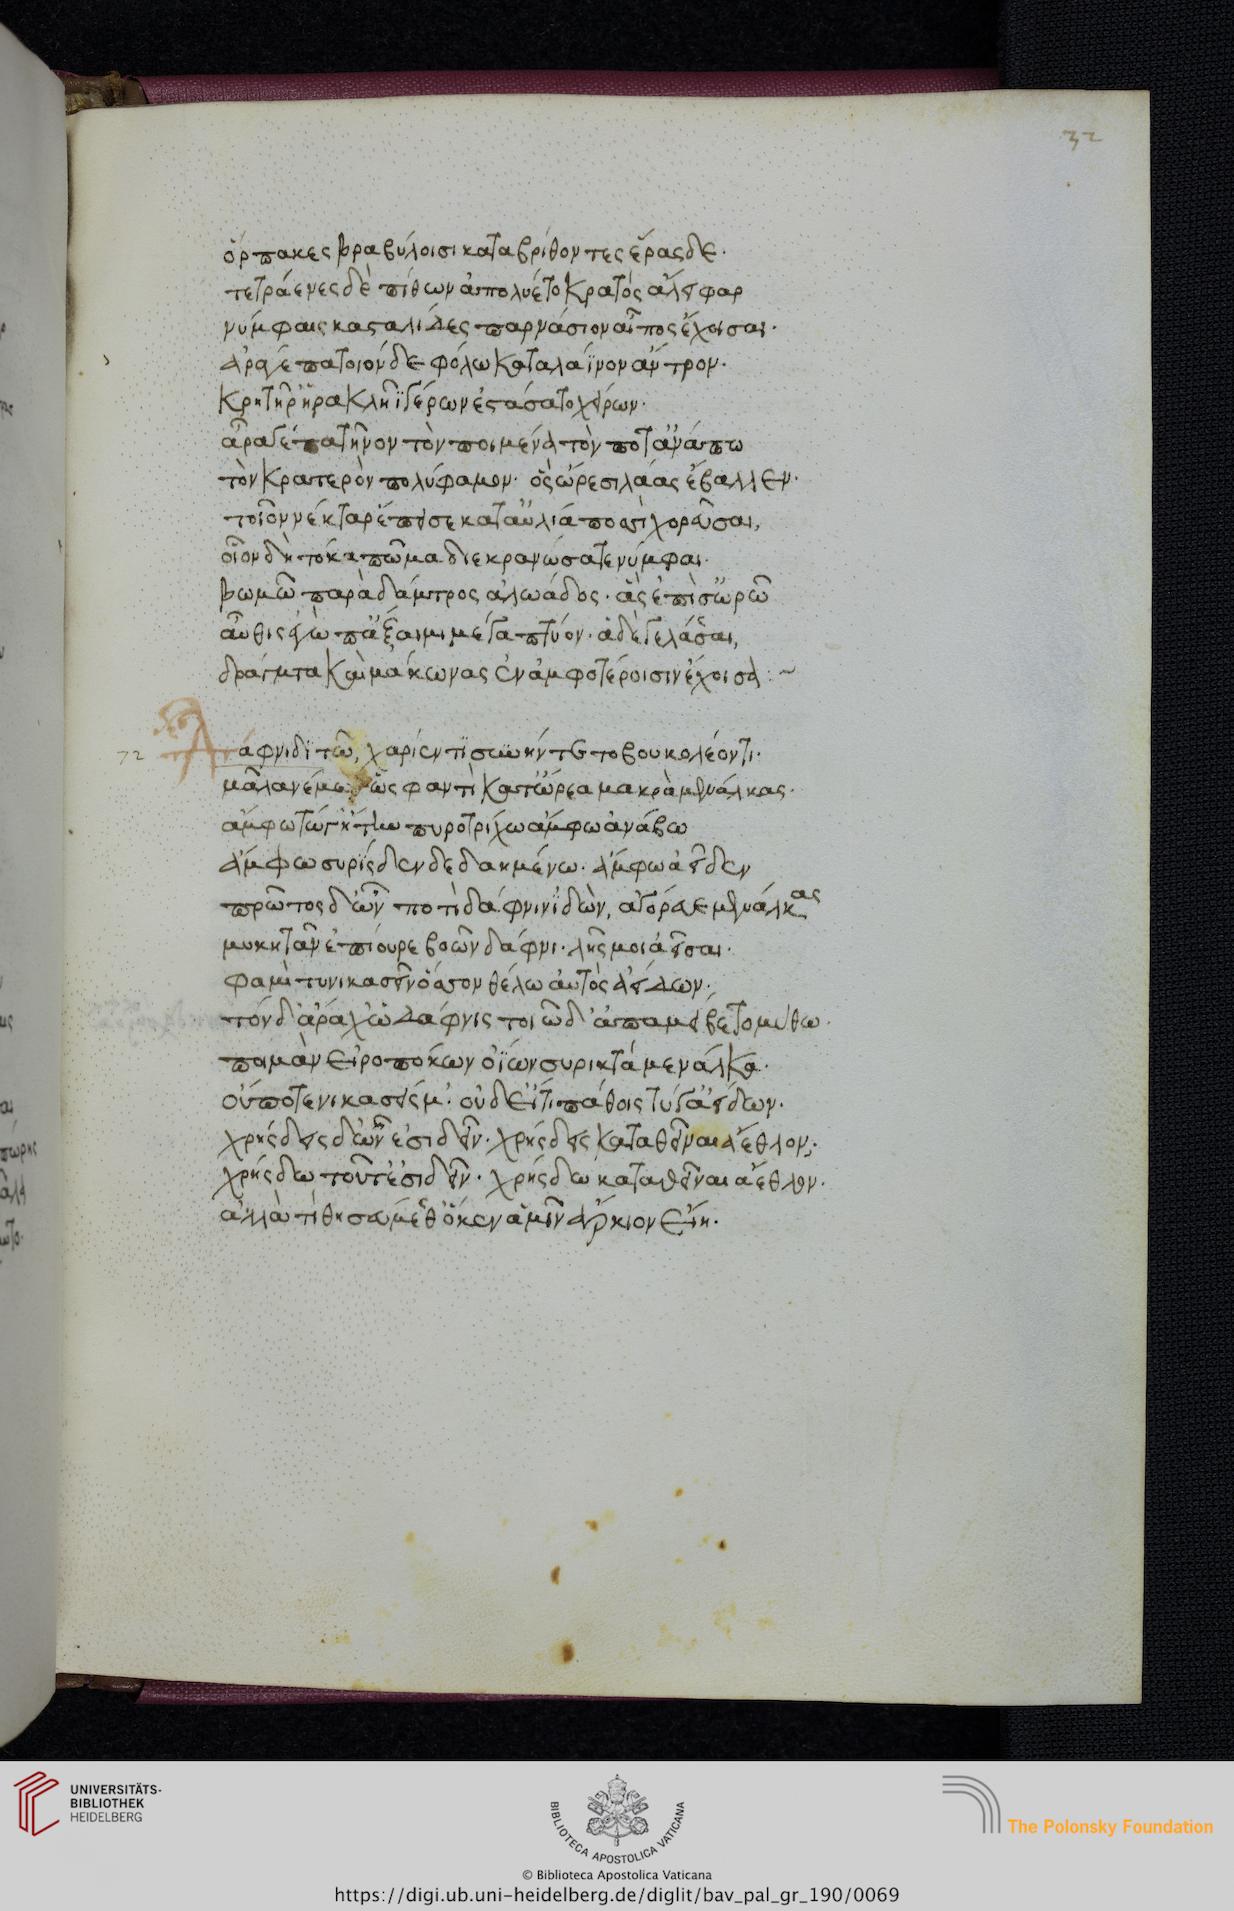 32
ὄρπακες βραβύλοισι καταβρίθοντες ἔρασδε·
τετράενες δὲ πίθων ἀπολύετο κρατὸς ἄλειφαρ
νύμφαις κασταλίδες παρνάσιον αἶπος ἔχοισαι·
ἆρά γέ πα τοιόνδε φόλω κατὰ λάϊνον ἄντρον·
κρητῆρ' ἡρακλῆϊ γέρων ἐστάσατο χείρων·
ἆρά γέ πα τῆνον τὸν ποιμένα τὸν ποτ' ἀνάπω
τὸν κρατερὸν πολύφαμον· ὃς ὤρεσι λάας ἔβαλλεν·
τοῖον νέκταρ ἔπεισε κατ' αὔλια ποσὶ χορεῦσαι,
οἷον δὴ τόκα πῶμα διεκρανώσατε νύμφαι·
βωμῶ παρὰ δάματρος ἀλωάδος· ἇς ἐπὶ σωρῶ
αὖθις ἐγὼ πάξαιμι μέγα πτύον· ἁ δὲ γελάσσαι,
δράγματα καὶ μάκωνας ἐν ἀμφοτέροισιν ἔχοισα :~
72
Δάφνιδι τῶ χαρίεντι συνήντετο βουκολέοντι·
μᾶλα νέμων ὥς φαντὶ κατ' ὤρεα μακρὰ μενάλκας·
ἄμφω τώγ' ἤτην πυροτρίχω ἄμφω ἀνάβω
ἄμφω συρίσδεν δεδαημένω· ἄμφω ἀείδεν
πρῶτος δ' ὦν ποτὶ δάφνιν ἰδὼν, ἀγόραε μενάλκας
μυκητᾶν ἐπίουρε βοῶν δάφνι· λῇς μοι ἀεῖσαι·
φαμὶ τυ νικασεῖν ὅσσον θέλω αὐτὸς ἀείδων·
τὸν δ' ἄρα χὠ δάφνις τοιῶδ' ἀπαμείβετο μύθω·
ποιμὰν εἰροπόκων ὀΐων συρικτὰ μενάλκα·
οὔποτε νικασεῖς μ'· οὐδ' εἴ τι πάθοις τύ γ' ἀείδων·
χρήσδεις δ' ὦν ἐσιδεῖν· χρήσδεις καταθεῖναι ἄεθλον;
χρήσδω τοῦτ' ἐσιδεῖν· χρήσδω καταθεῖναι ἄεθλον·
ἀλλὰ τί θησούμεσθ' ὅκεν ἁμῖν ἄρκιον εἴη·
UNIVERSITÄTS-
BIBLIOTHEK
HEIDELBERG
BIBLIOTECA APOSTOLICA VATICANA
The Polonsky Foundation
© Biblioteca Apostolica Vaticana
https://digi.ub.uni-heidelberg.de/diglit/bav_pal_gr_190/0069